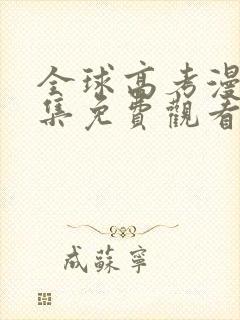 全球高考漫
集免費觀看
成蘇寧